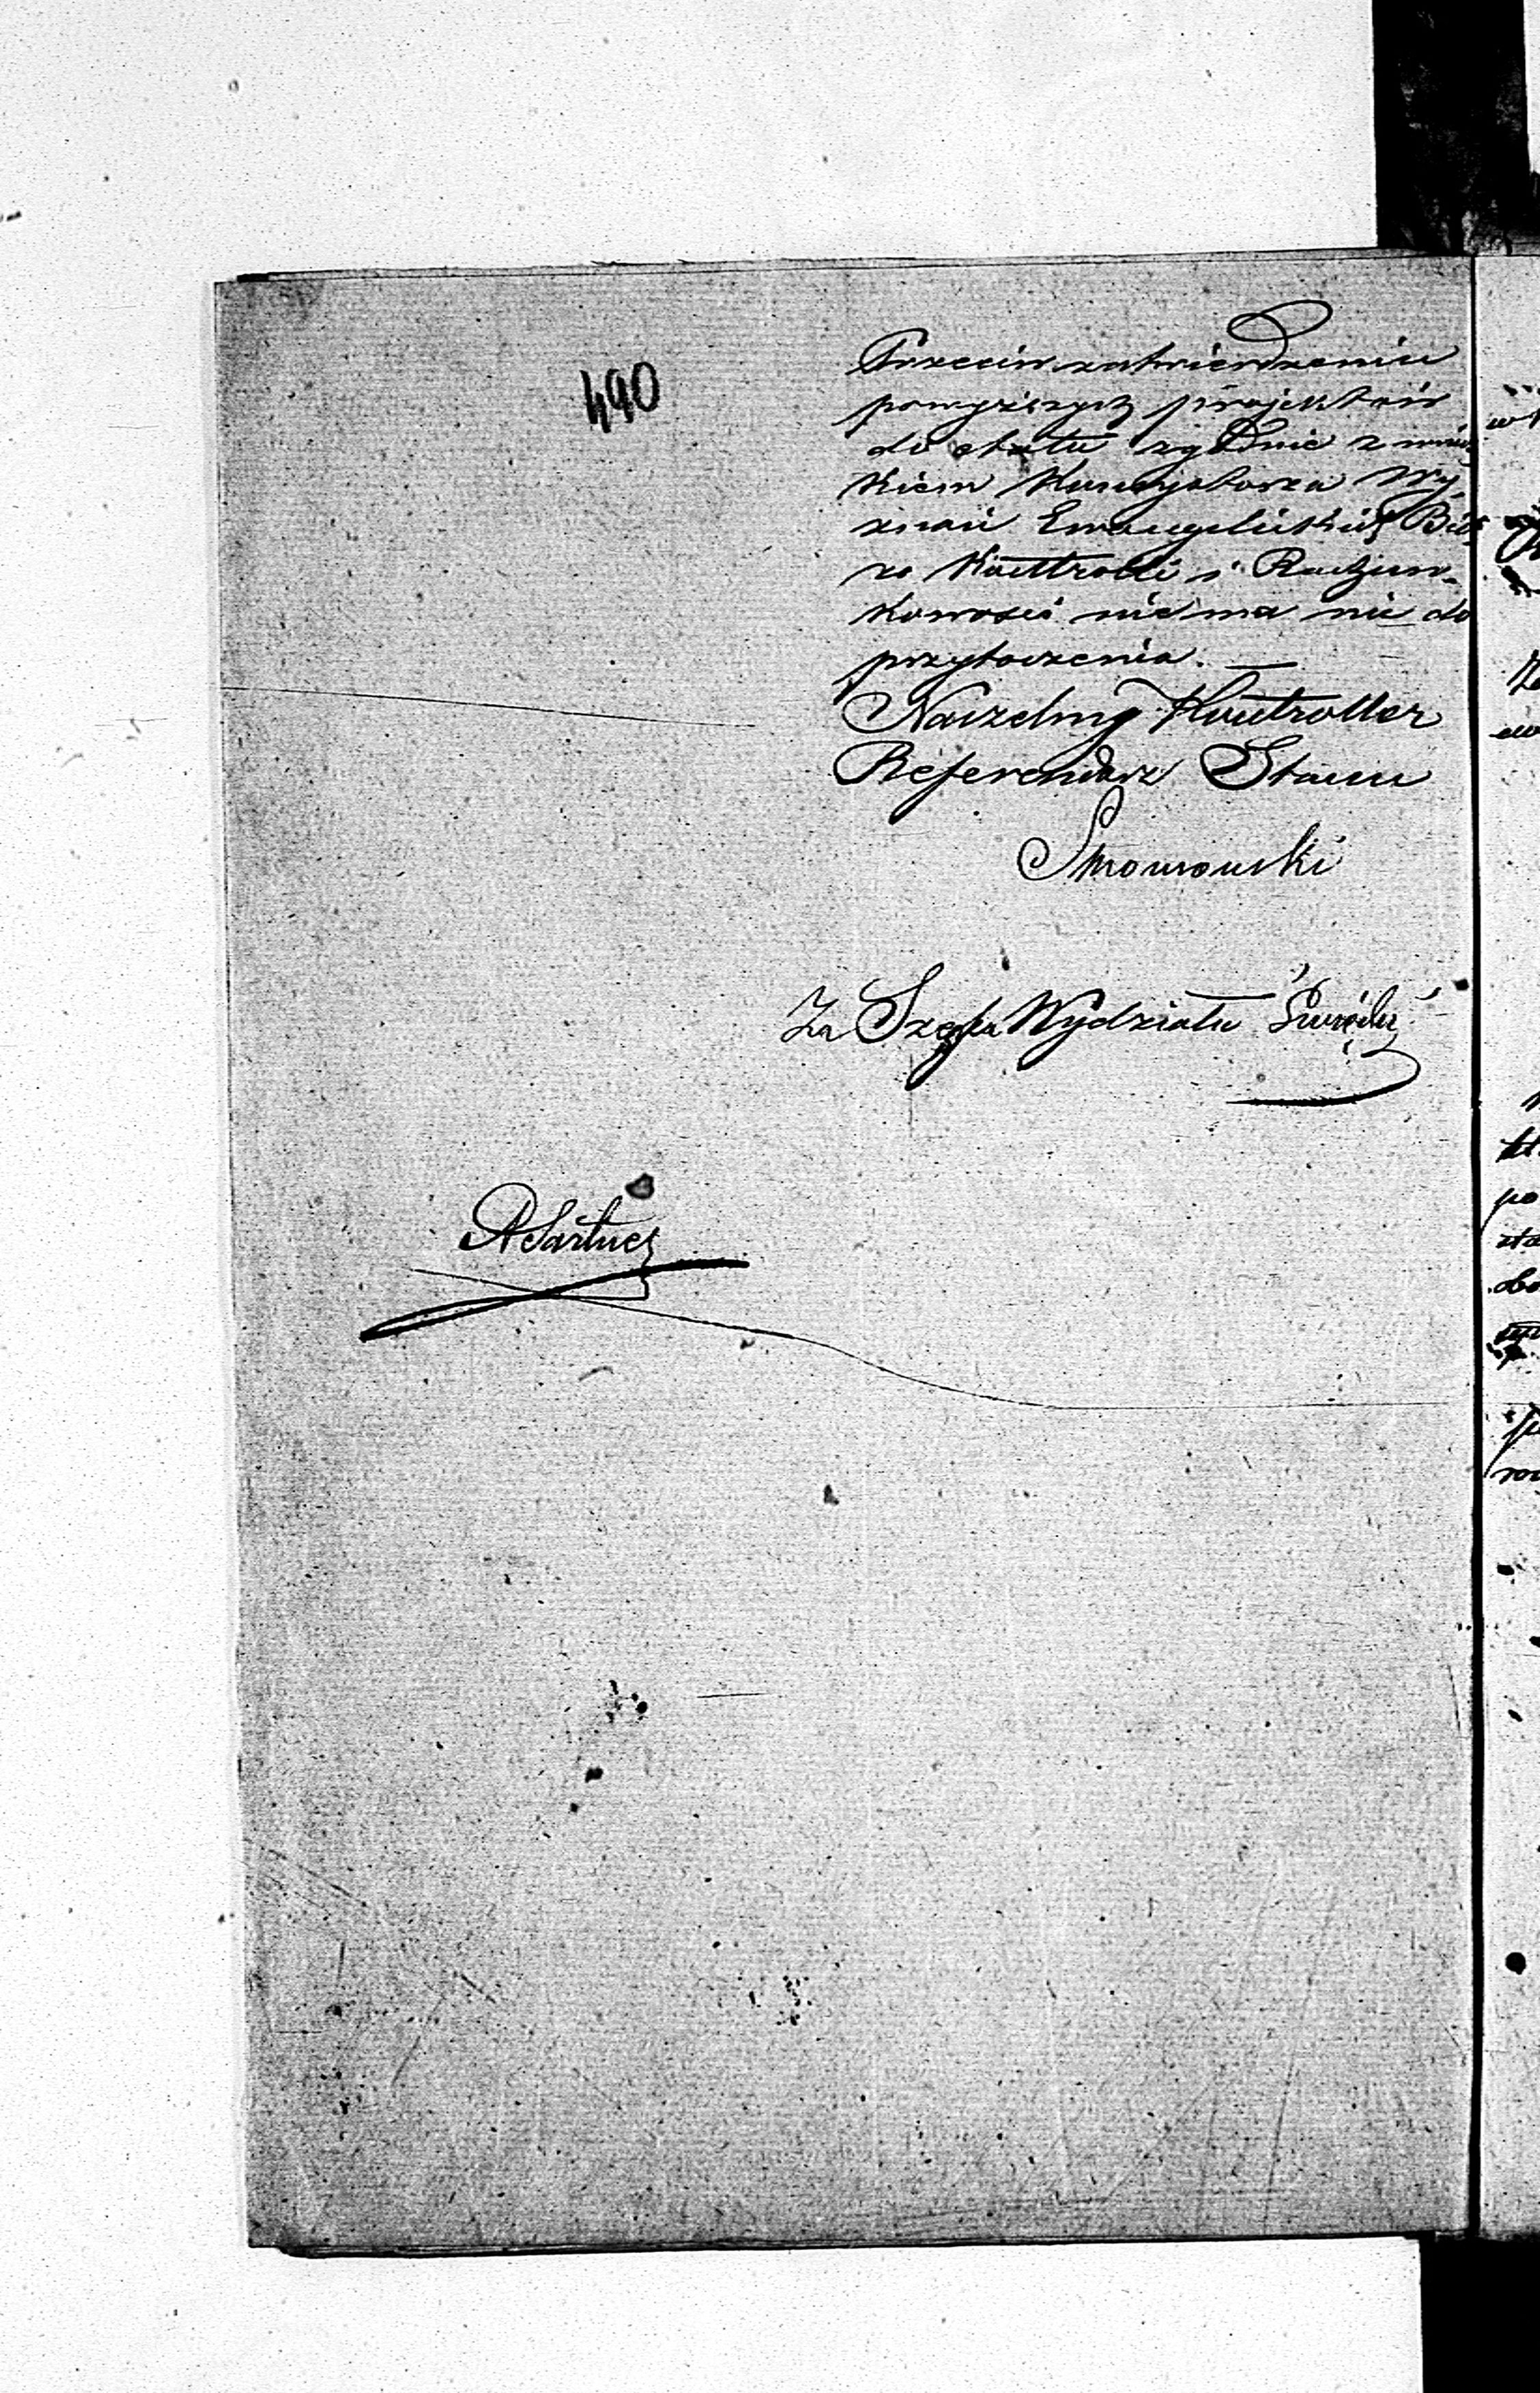 490
Przeciw zatwierdzeniu
powyższych projektów
do etatu zgodnie z wnios
kiem Konsystorza Wy
znań Ewangelickich Biu
ro Kontrolli i Rachun-
kowości nie ma nic do
przytoczenia.
Naczelny Kontroller
Referendarz Stanu
Za Szefa Wydziału